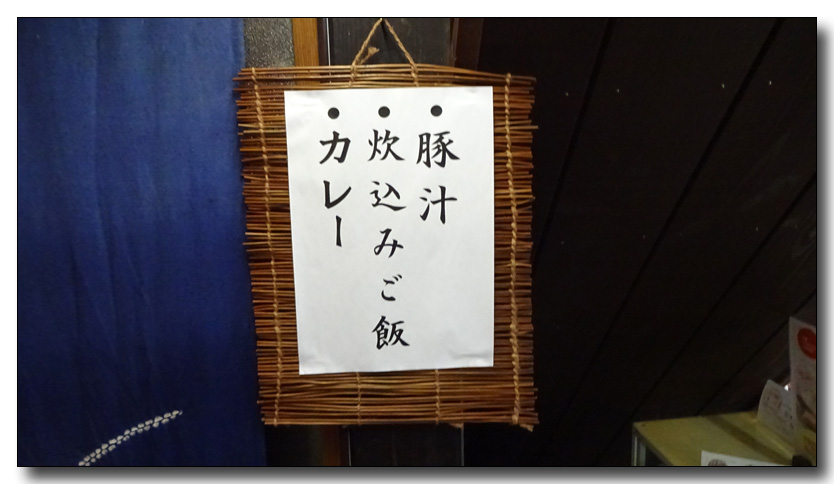 ・豚汁
・炊込みご飯
・カレー